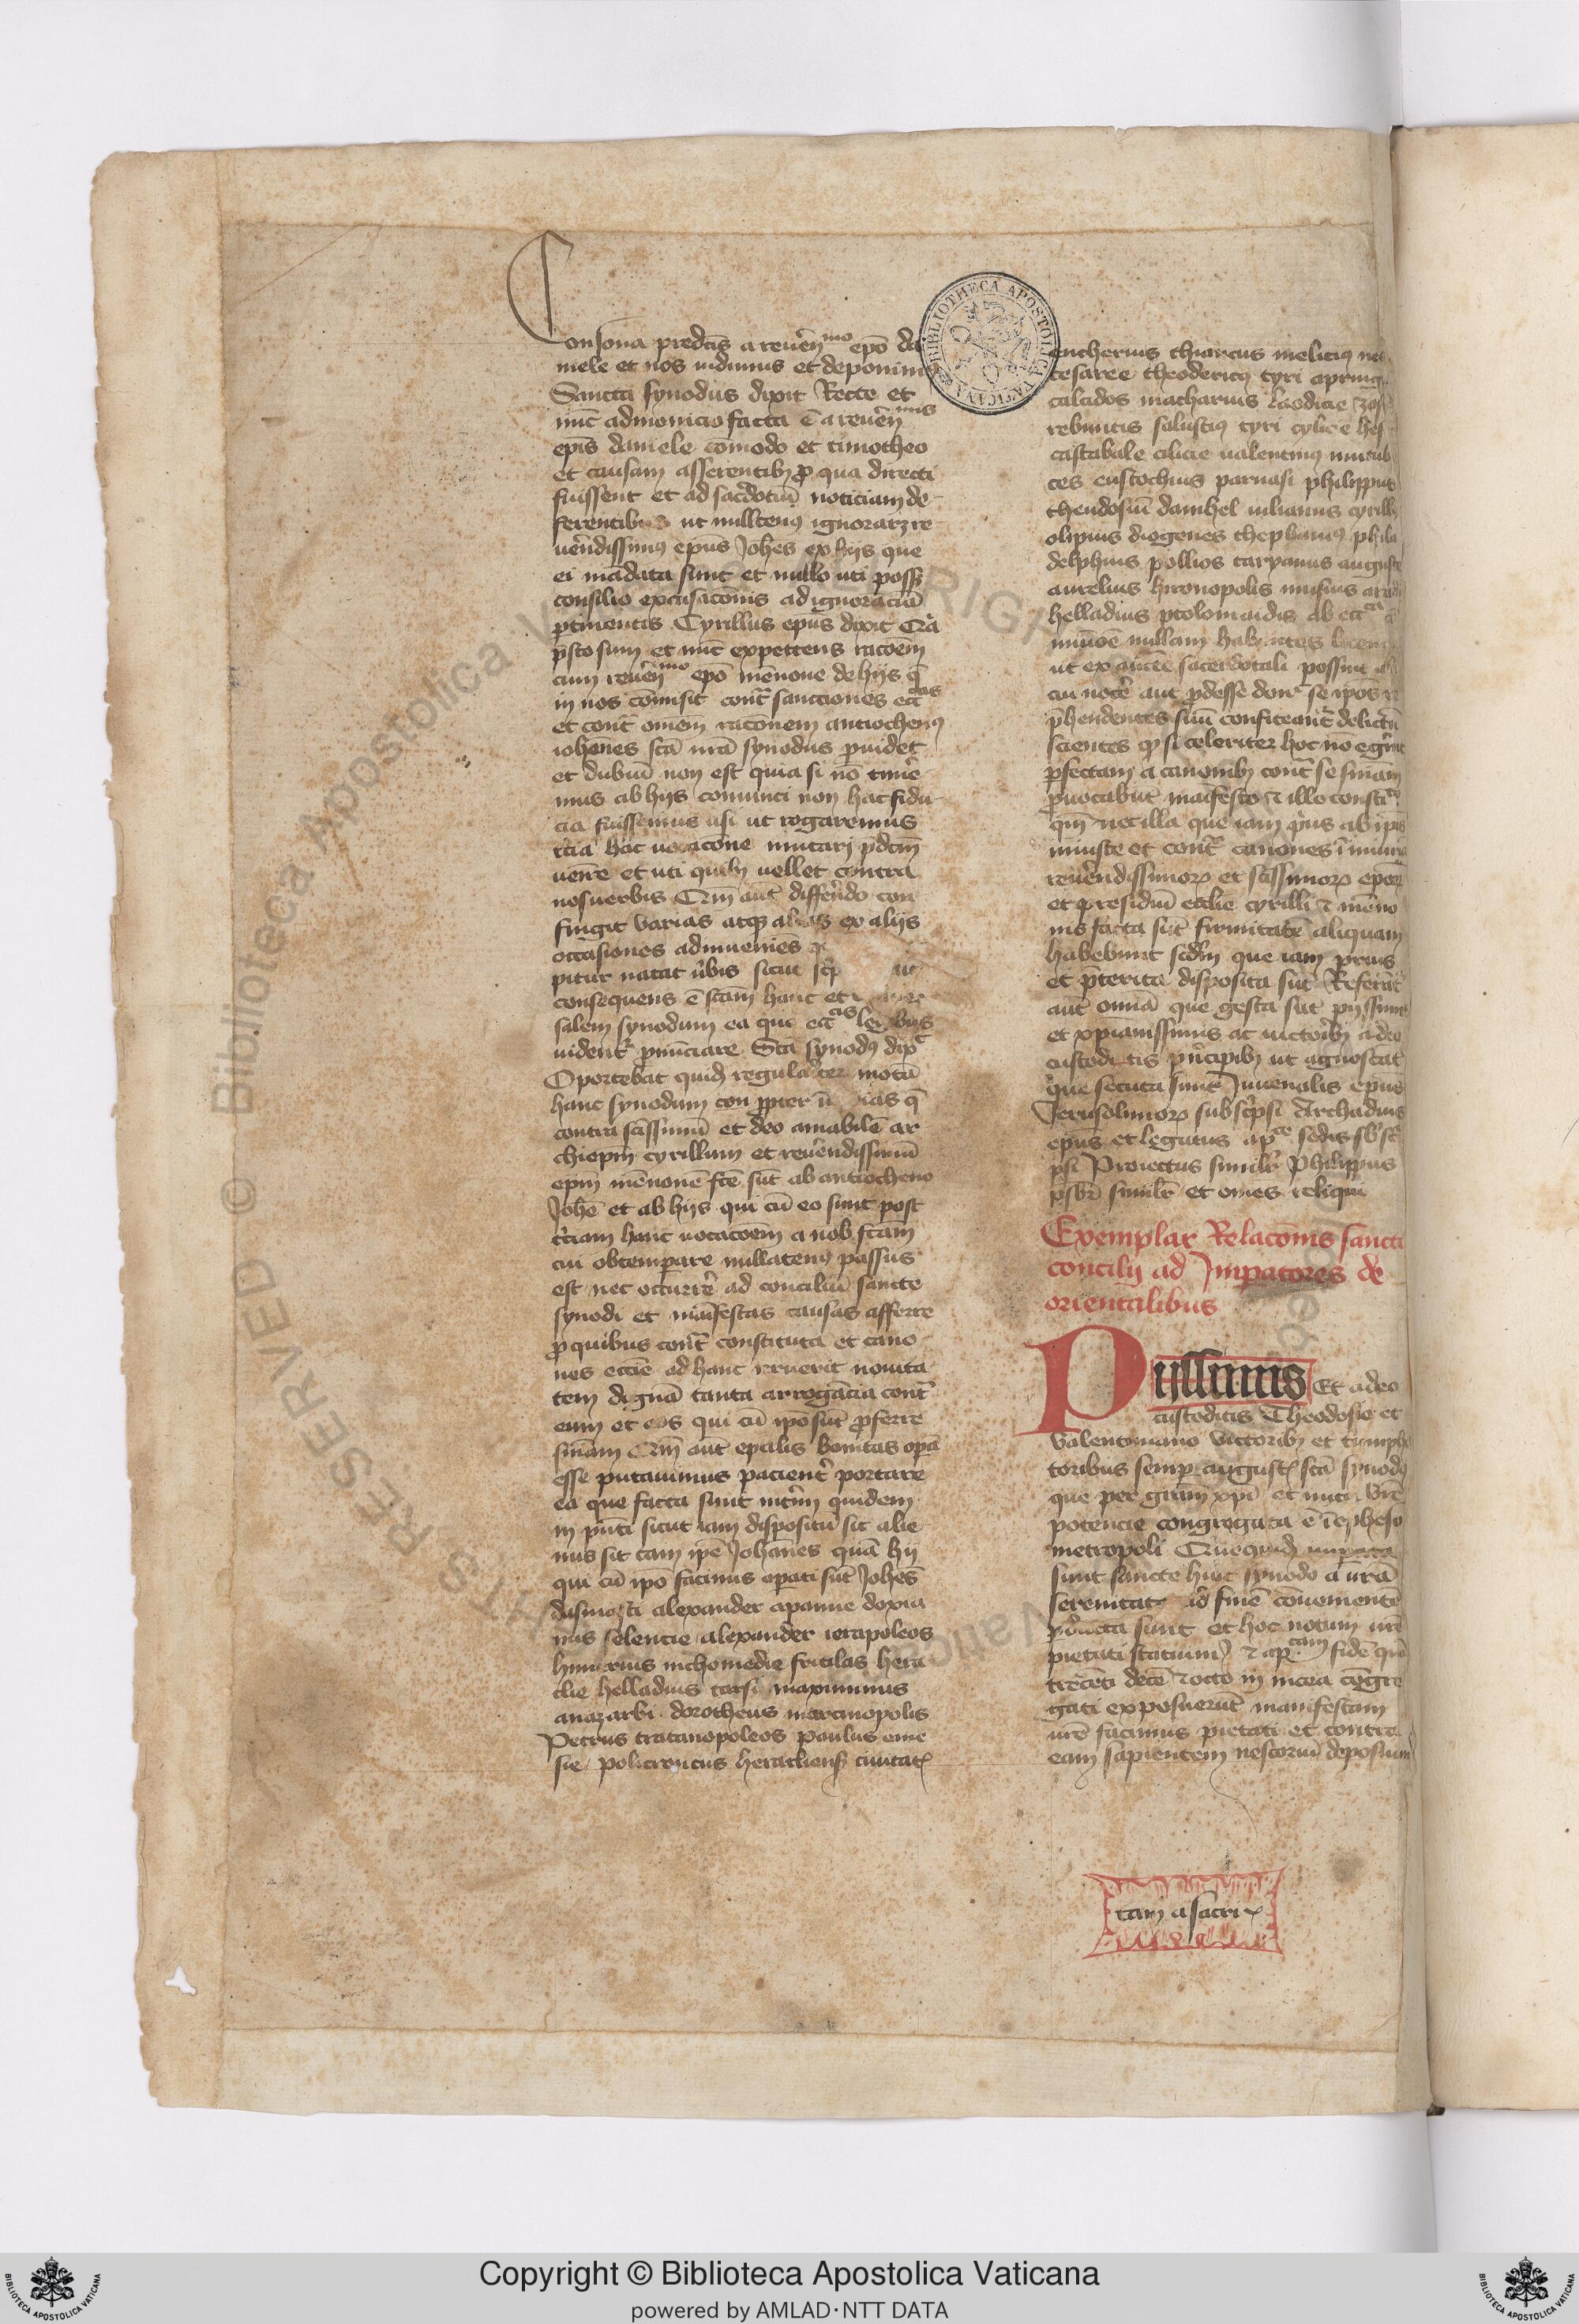 Consona predcis a reuerenmo epo da
niele et nos uidimus et deponimus
Sancta synodus dixit Recte et
nunc admonicio facta e a reuerenmis
epis daniele comodo et timotheo
et causam asserentibz pro qua directi
fuissent et ad sacdotiu noticiam de
ferentibus ut nullatenus ignoraret re
uerendissimus epus Johes ex hijs que
ei madata sunt et nullo uti posset
consilio excusacionis ad ignoranciam
ptinentis Cyrillus epus dixit
psto sum et nunc expectans racoem
cum reueremo epo menone de hijs q
in nos comisit contra sanctiones eccas
et cont omnem racionem antiochenus
iohannes sca ura synodus prouidet
et dubiu non est quia si no time
mus ab hijs conuinci non hac fidu
cia fuissemus usi ut rogaremus
tcia hac uocacione inuitari pdcm
uenire et uti quibz uellet contra
nos uerbis Qm aut differendo con
fingit varias atqz alias ex alijs
occasiones adinueniens
pitur natat urbis sicut scp
consequens e scam hanc et
salem synodum ea que eccis legibus
uident pnunciare Sca synodus dix
Oportebat quidem regulariter mota
hanc synodum con ppter iniurias q
contra scissimu et deo amabile ar
chiepm cyrillum et reuerendissimu
epm menone fce sut ab antiocheno
Johe et ab hijs qui cu eo sunt post
tciam hanc uocacoem a nob fcam
cui obtemperare nullatenus passus
est nec occurre ad conciliu sancte
synodi et maifestas causas afferre
p quibus cont constituta et cano
nes eccie ad hanc irruerit nouita
tem digna tanta arrogacia cont
eum et eos qui cu ipo sut proferre
sniam Qm aut epalis bonitas opa
esse putauimus pacient portare
ea que facta sunt interim quidem
in pnti sicut iam dispositu sit alie
nus sit tam ipe Johannes qua hij
qui cu ipo facinus operati sut Johes
damasci alexander apamie doxia
nus selencie alexander ierapoleos
himerius nichomedie fritilas hera
clie helladius tarsi maximinus
anazarbi dorotheus marcinopolis
Petrus tratanopoleos paulus eme
sie policronius heracliens ciuitat
eucherius thiancus melicius neo
cesaree theodericus tyri apringius
calcidos macharius laodicie zosis
rebuntis salustius tyri cylicie hes
castabale cilicie ualentinus mutub
ces eustochius parnasi philippus
theudosiu danihel iulianus cyrillus
olipius diogenes theophanius phila
delphius pollios taryanus auguste
aurelius hironopolis musius aradi
helladius ptolomaidis ab ecc
munioe nullam habentes licenciam
ut ex aucte sacerdotali possint ali
cui nocere aut pdesse donec se ipos re
phendentes suu confiteantur delictu
scientes qz si celeriter hoc no egerint
pfectam a canonibz cont se sniam
puocabut maifesto et illo constit
qm nec illa que iam prius ab ipis
iniuste et cont canones iniuria
reuerendissimorum et scissimorum eporum
et presidiu ecclie cyrilli et meno
nis facta sut firmitate aliquam
habebunt scdm que iam prius
et pterita disposita sut Referant
aut omia que gesta sut pijssimis
et xpianissimis ac uictoribz a deo
custoditis pncipibz ut agnoscat
que secuta sunt Juuenalis epus
Jerusolimorum subscripsi Archadius
epus et legatus apce sedis sbsc
psi Proiectus similr Philippus
psbr similr et omes reliqui
Exemplar Relaconis sancti
concilij ad Impatores de
orientalibus
Pijssimis Et a deo
custoditis Theodosio et
Valentiniano victoribz et triumpha
toribus semper augustis sca synodus
que per gram xpi et nutu vre
potencie congregata e i epheso
metropoli Quequidem imperata
sunt sancte huic synodo a ura
serenitate ad fine conueniente
perducta sunt et hoc notum ure
pietati statuim et apcam fide qua
trecenti dece et octo in nicea congre
gati exposuerut manifestam
ure facimus pietati et contra
eam sapientem nestoriu deposuim
tam a sacri
BIBLIOTHECA APOSTOLICA VATICANA
Copyright © Biblioteca Apostolica Vaticana
powered by AMLAD·NTT DATA